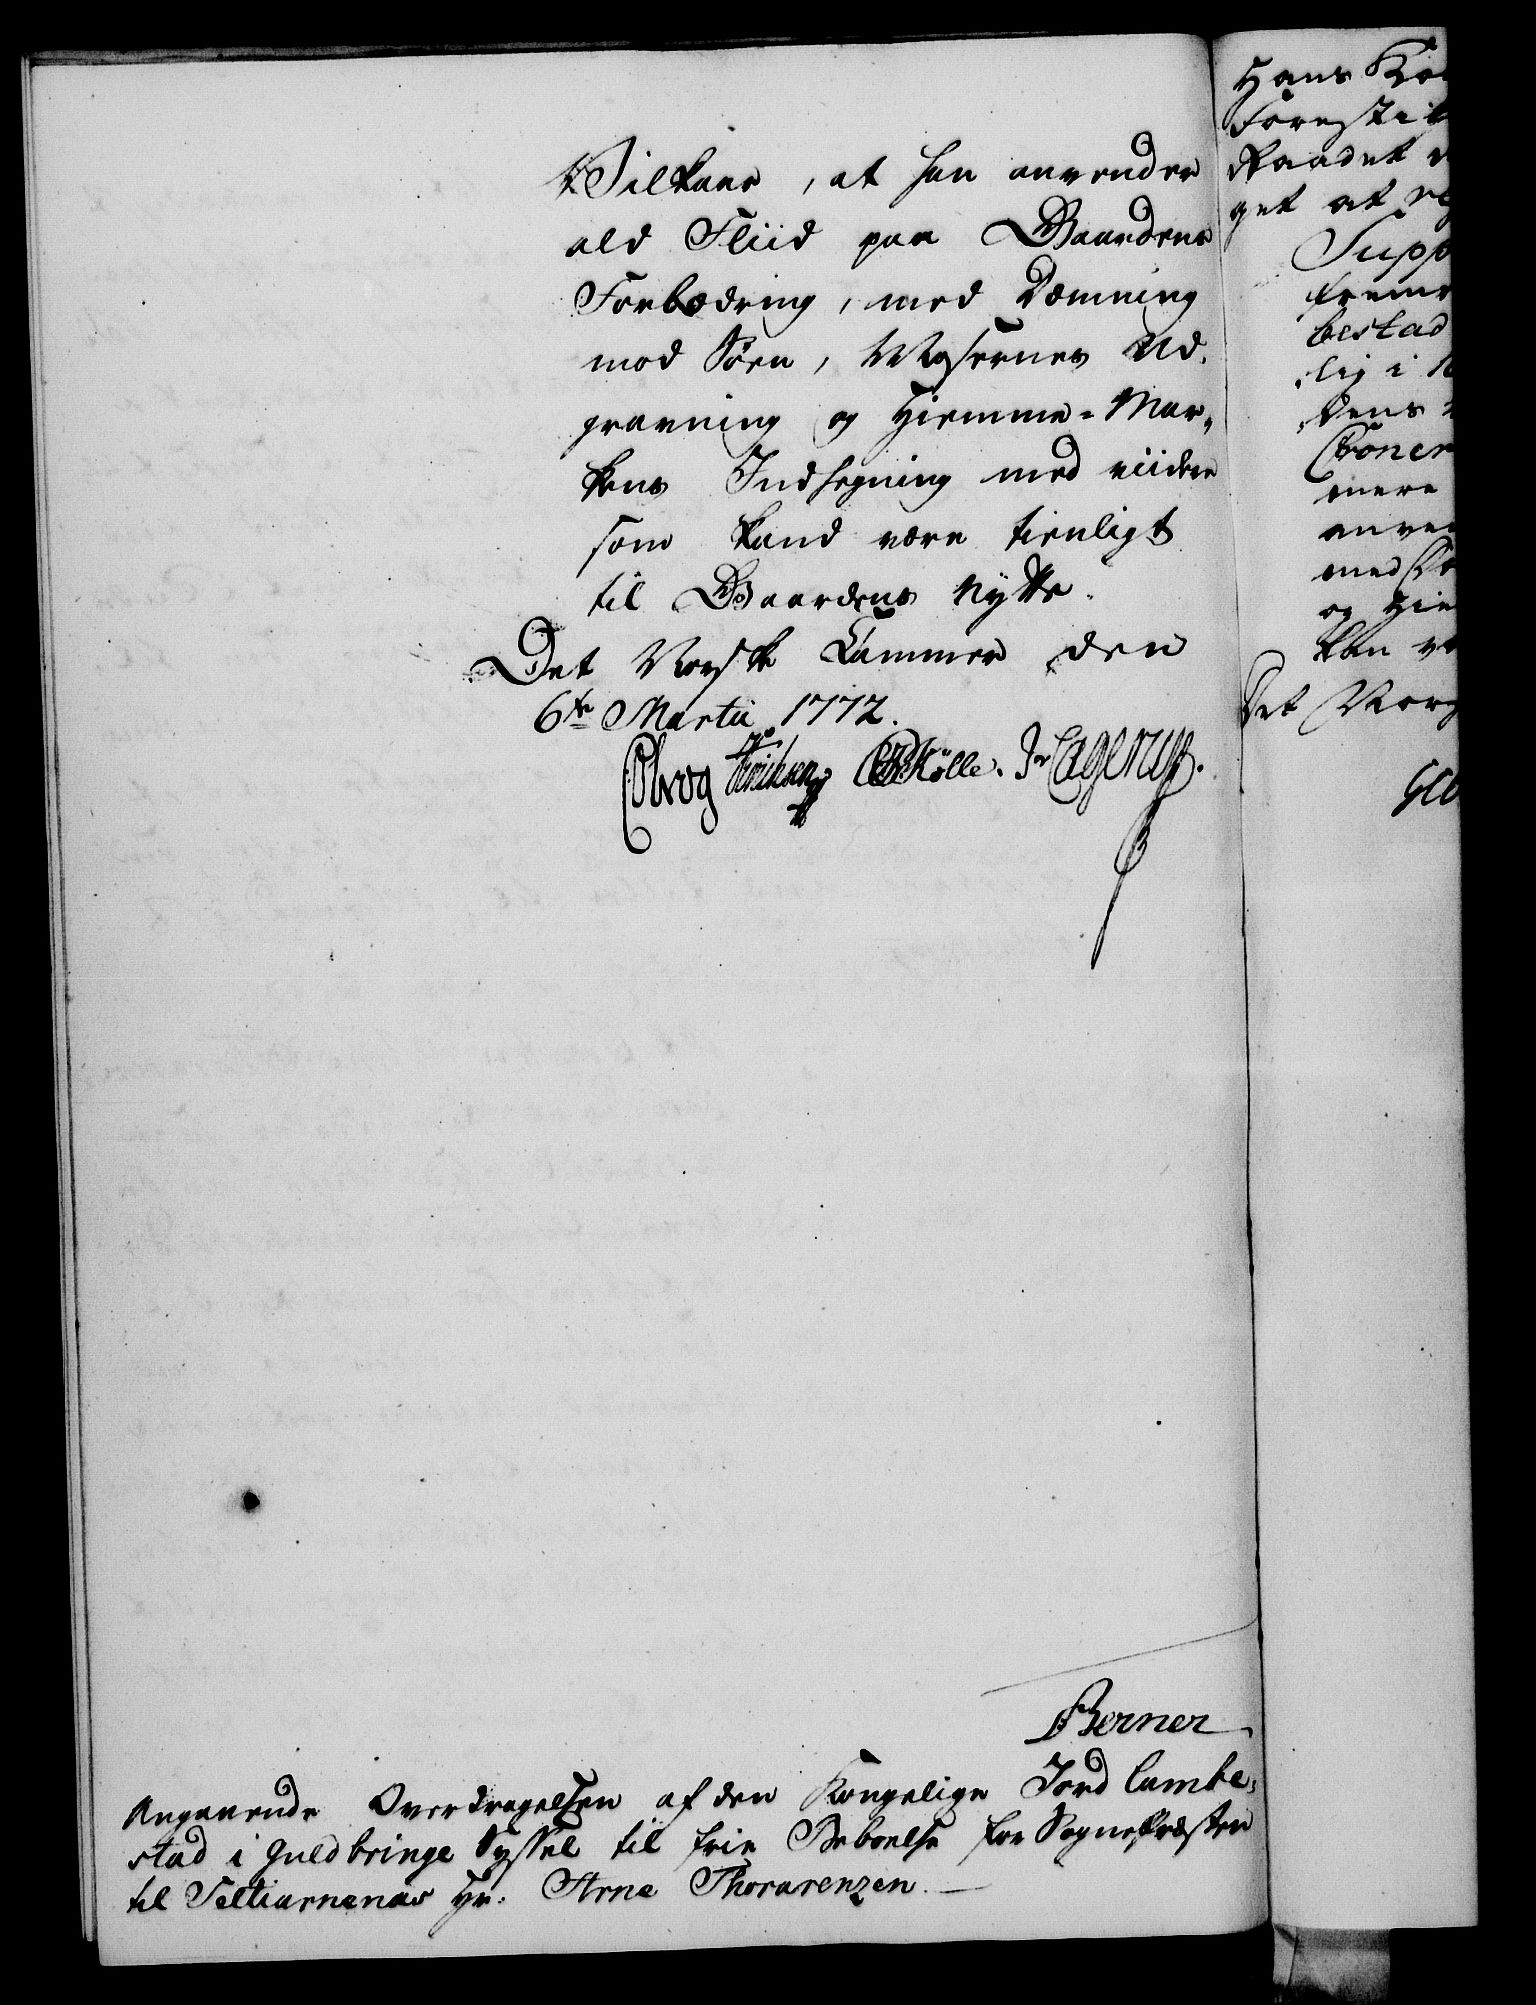 Vilkaar, at han anvender
ald Fliid paa Gaardens
Forbædring, med Dæmning
mod Søen, Mosernes Ud-
gravning og Hiemme-Mar-
kens Indhegning med viidere
som kand være tienligt
til Gaardens Nytte.
Det Norske Kammer den
6te Martii 1772.
Obrog Erichsen Kölle. Jr Lagerup.
Berner
Angaaende Overdragelsen af den Kongelige Jord Lambe-
stad i Guldbringe Syssel til frie Beboelse for Sognepræsten
til Seltiarnenæs Hr. Arne Thorarenzen.
Hans
Raadet
get at
Supp
bestad
lig i
dens
mere
anven
med
og Hie
kan
Det Nors